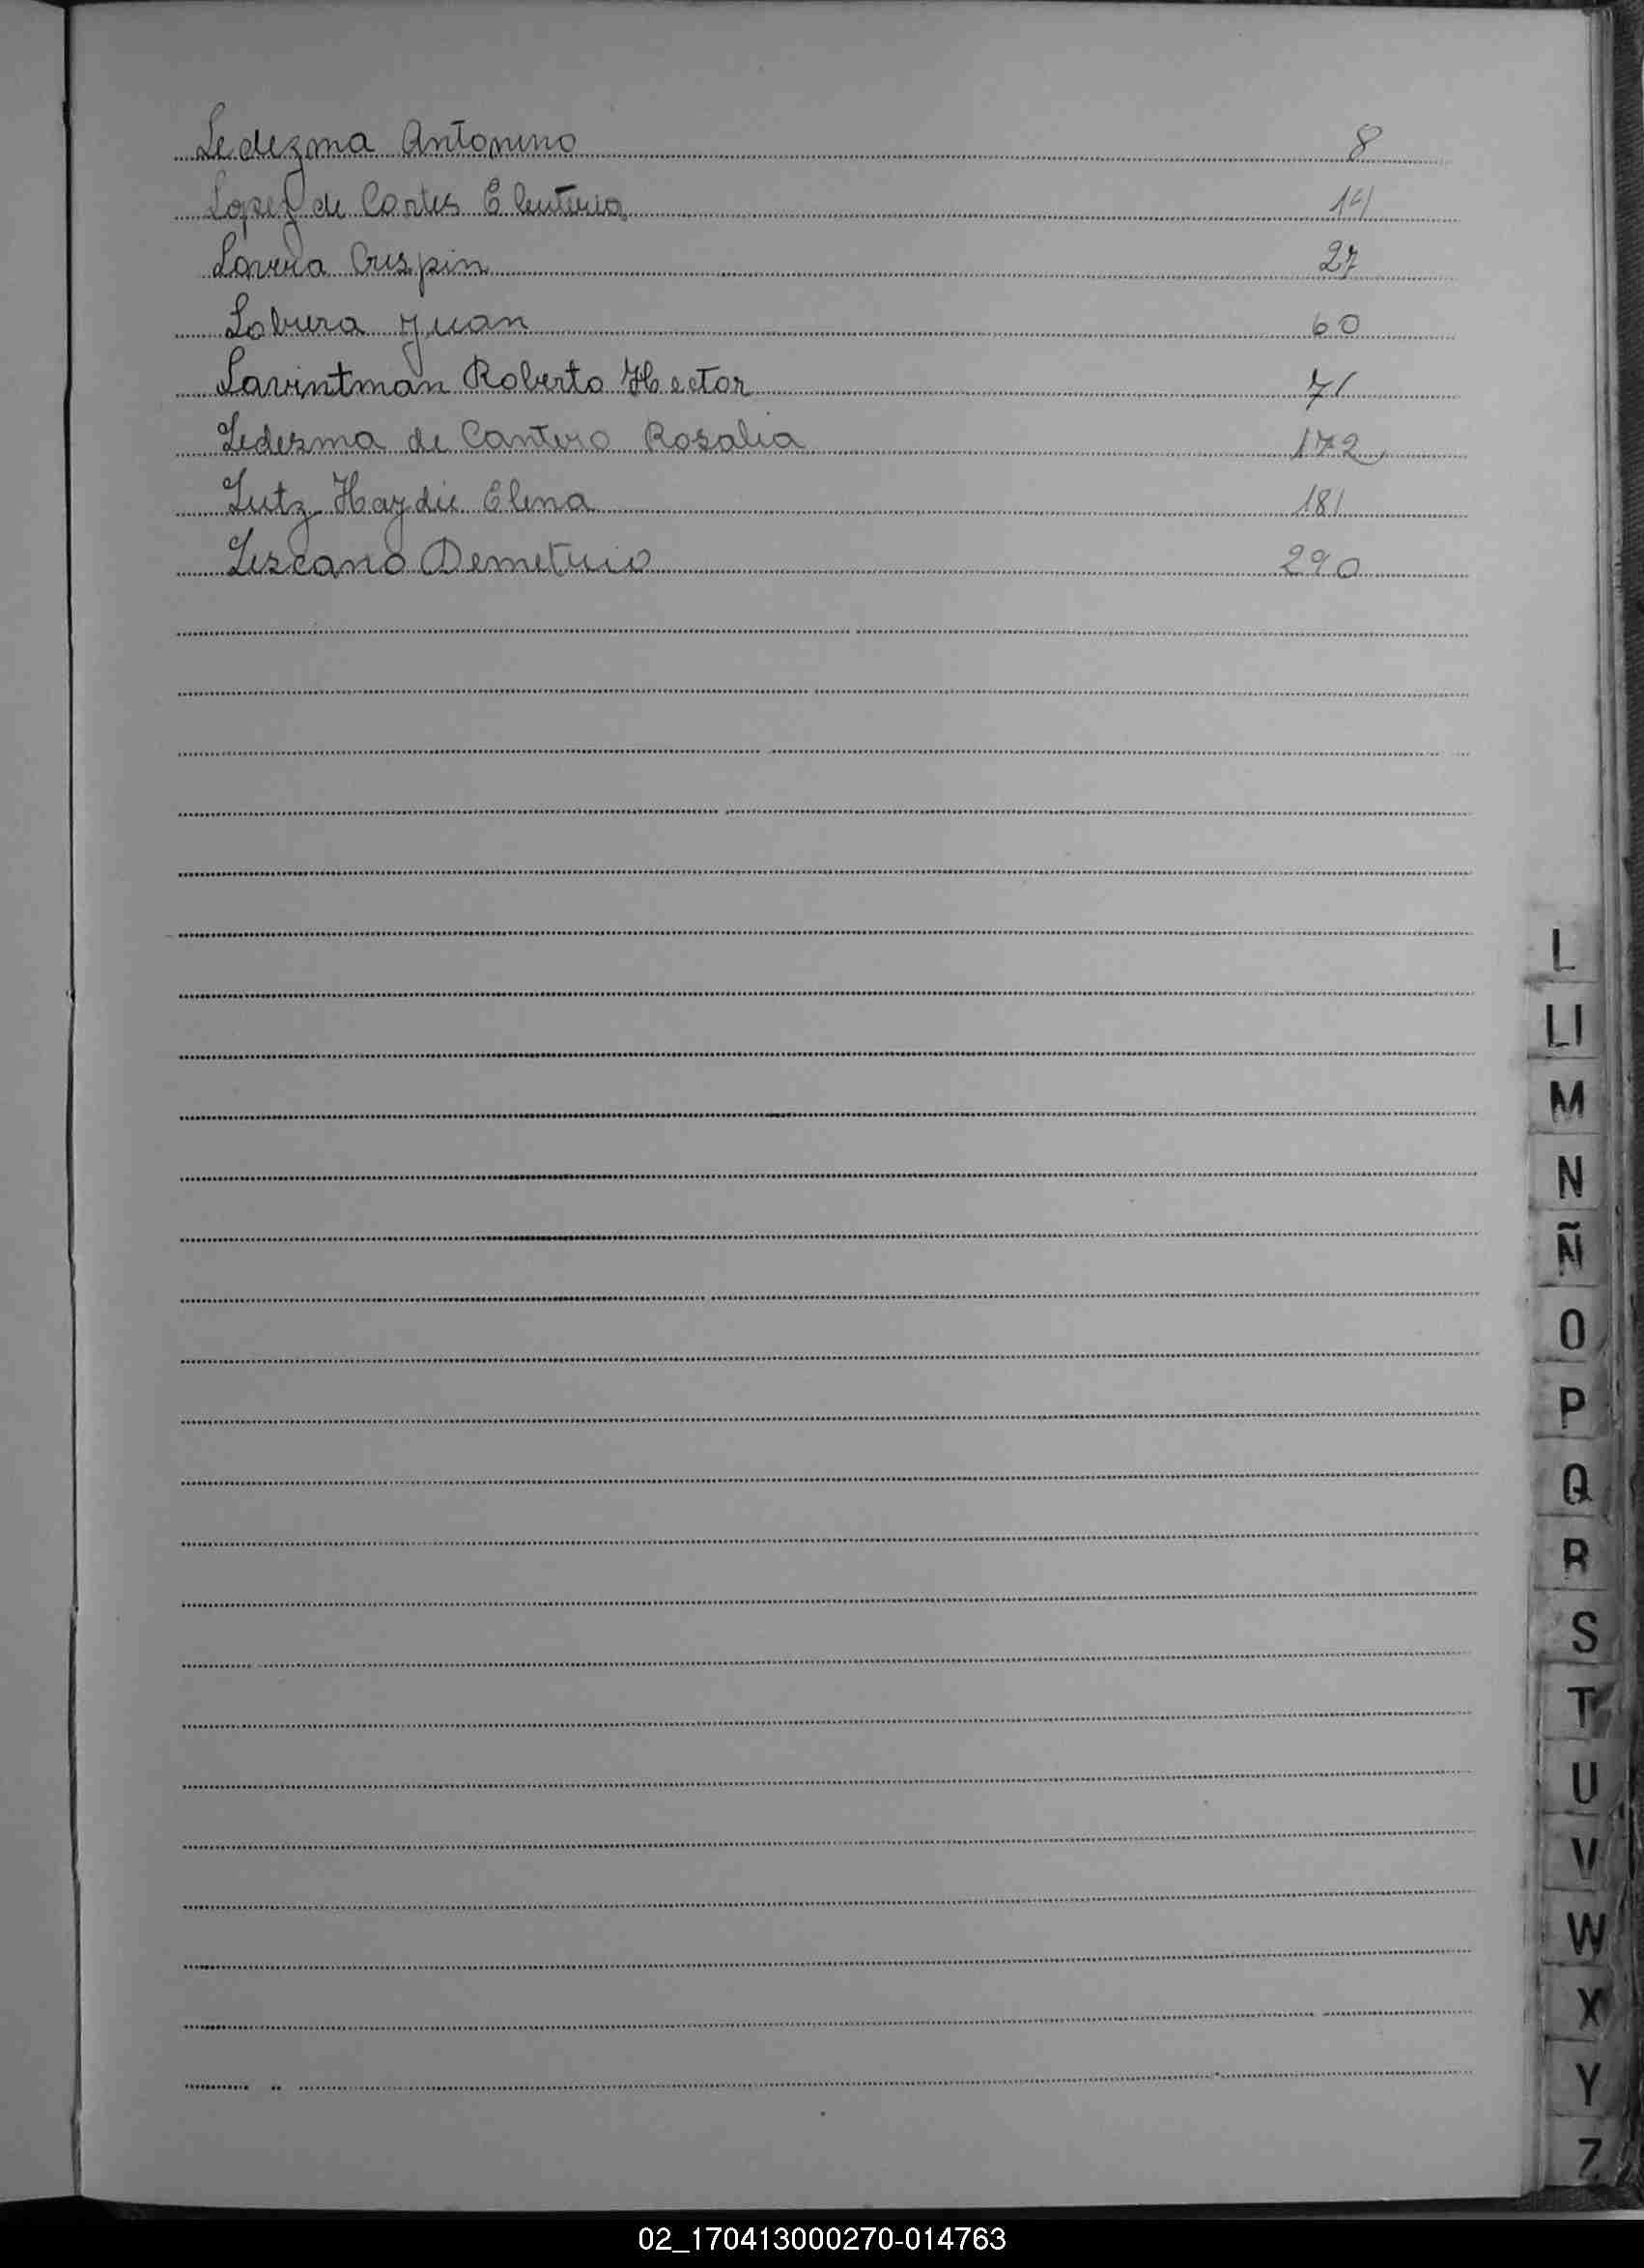 Ledezma Antonino 8
Lopez de Cortes Eleuteria 14
Lovera Crispin 27
Lobera Juan 60
Lavintman Roberto Hector 71
Ledesma de Cantero Rosalia 172
Lutz Haydie Elena 181
Lezcano Demetrio 290
L
Ll
M
N
Ñ
O
P
Q
R
S
T
U
V
W
X
Y
Z
02_170413000270-014763